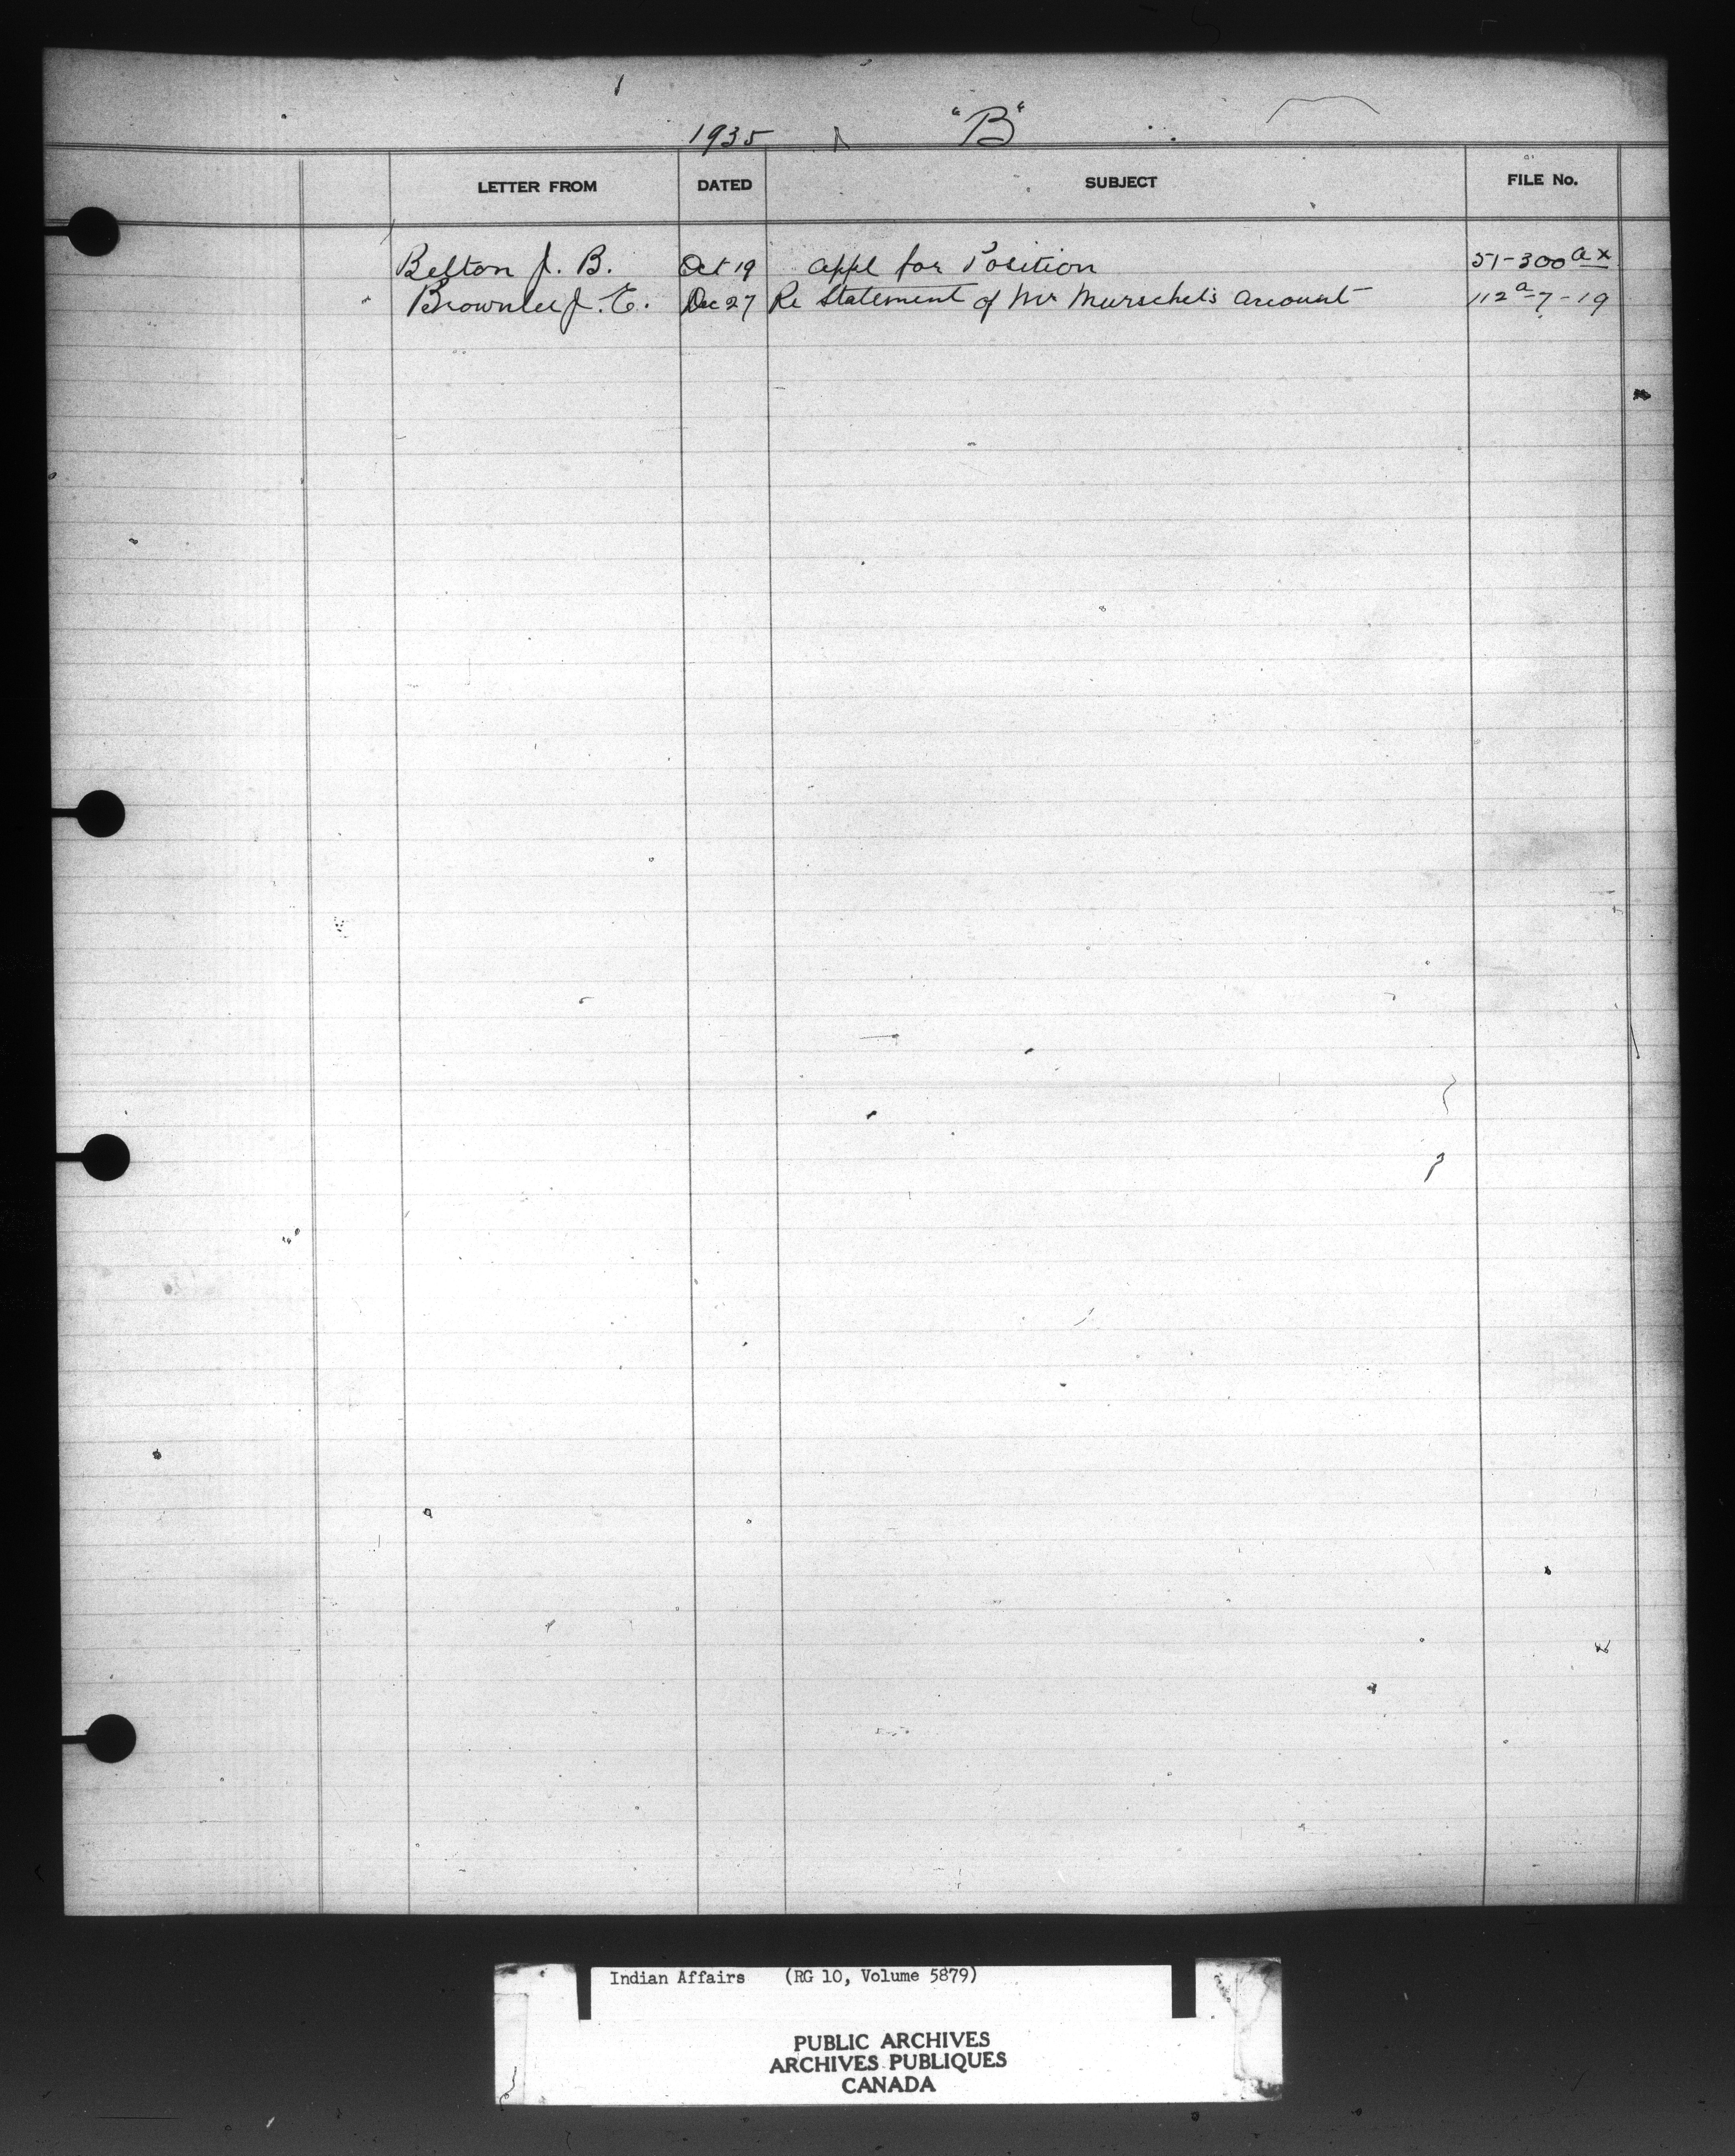 1935 "B"
LETTER FROM DATED SUBJECT FILE No.
Belton J. B. Oct 19 Appl for Position 51-300 ax
Brownlee J. E. Dec 27 Re Statement of Mr Murschel's Account 112a-7-19
Indian Affairs (RG 10, Volume 5879)
PUBLIC ARCHIVES
ARCHIVES PUBLIQUES
CANADA